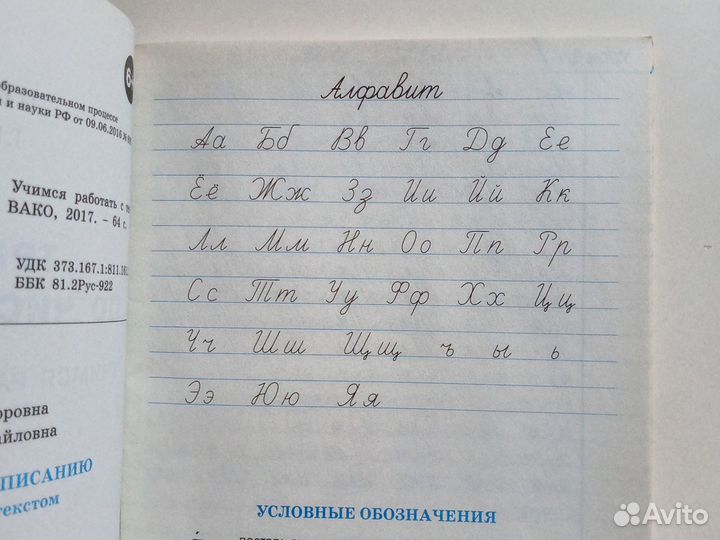 бразовательном процессе
и науки РФ от 09.06.2016 №
Учимся работать с
ВАКО, 2017. – 64 с.
УДК 373.167.1:811.161.
ББК 81.2Рус-922
оровна
айловна
ПИСАНИЮ
текстом
Алфавит
Аа Бб Вв Гг Дд Ее
Ёё Жж Зз Ии Йй Кк
Лл Мм Нн Оо Пп Рр
Сс Тт Уу Фф Хх Цц
Чч Шш Щщ ъ ы ь
Ээ Юю Яя
УСЛОВНЫЕ ОБОЗНАЧЕНИЯ
Avito